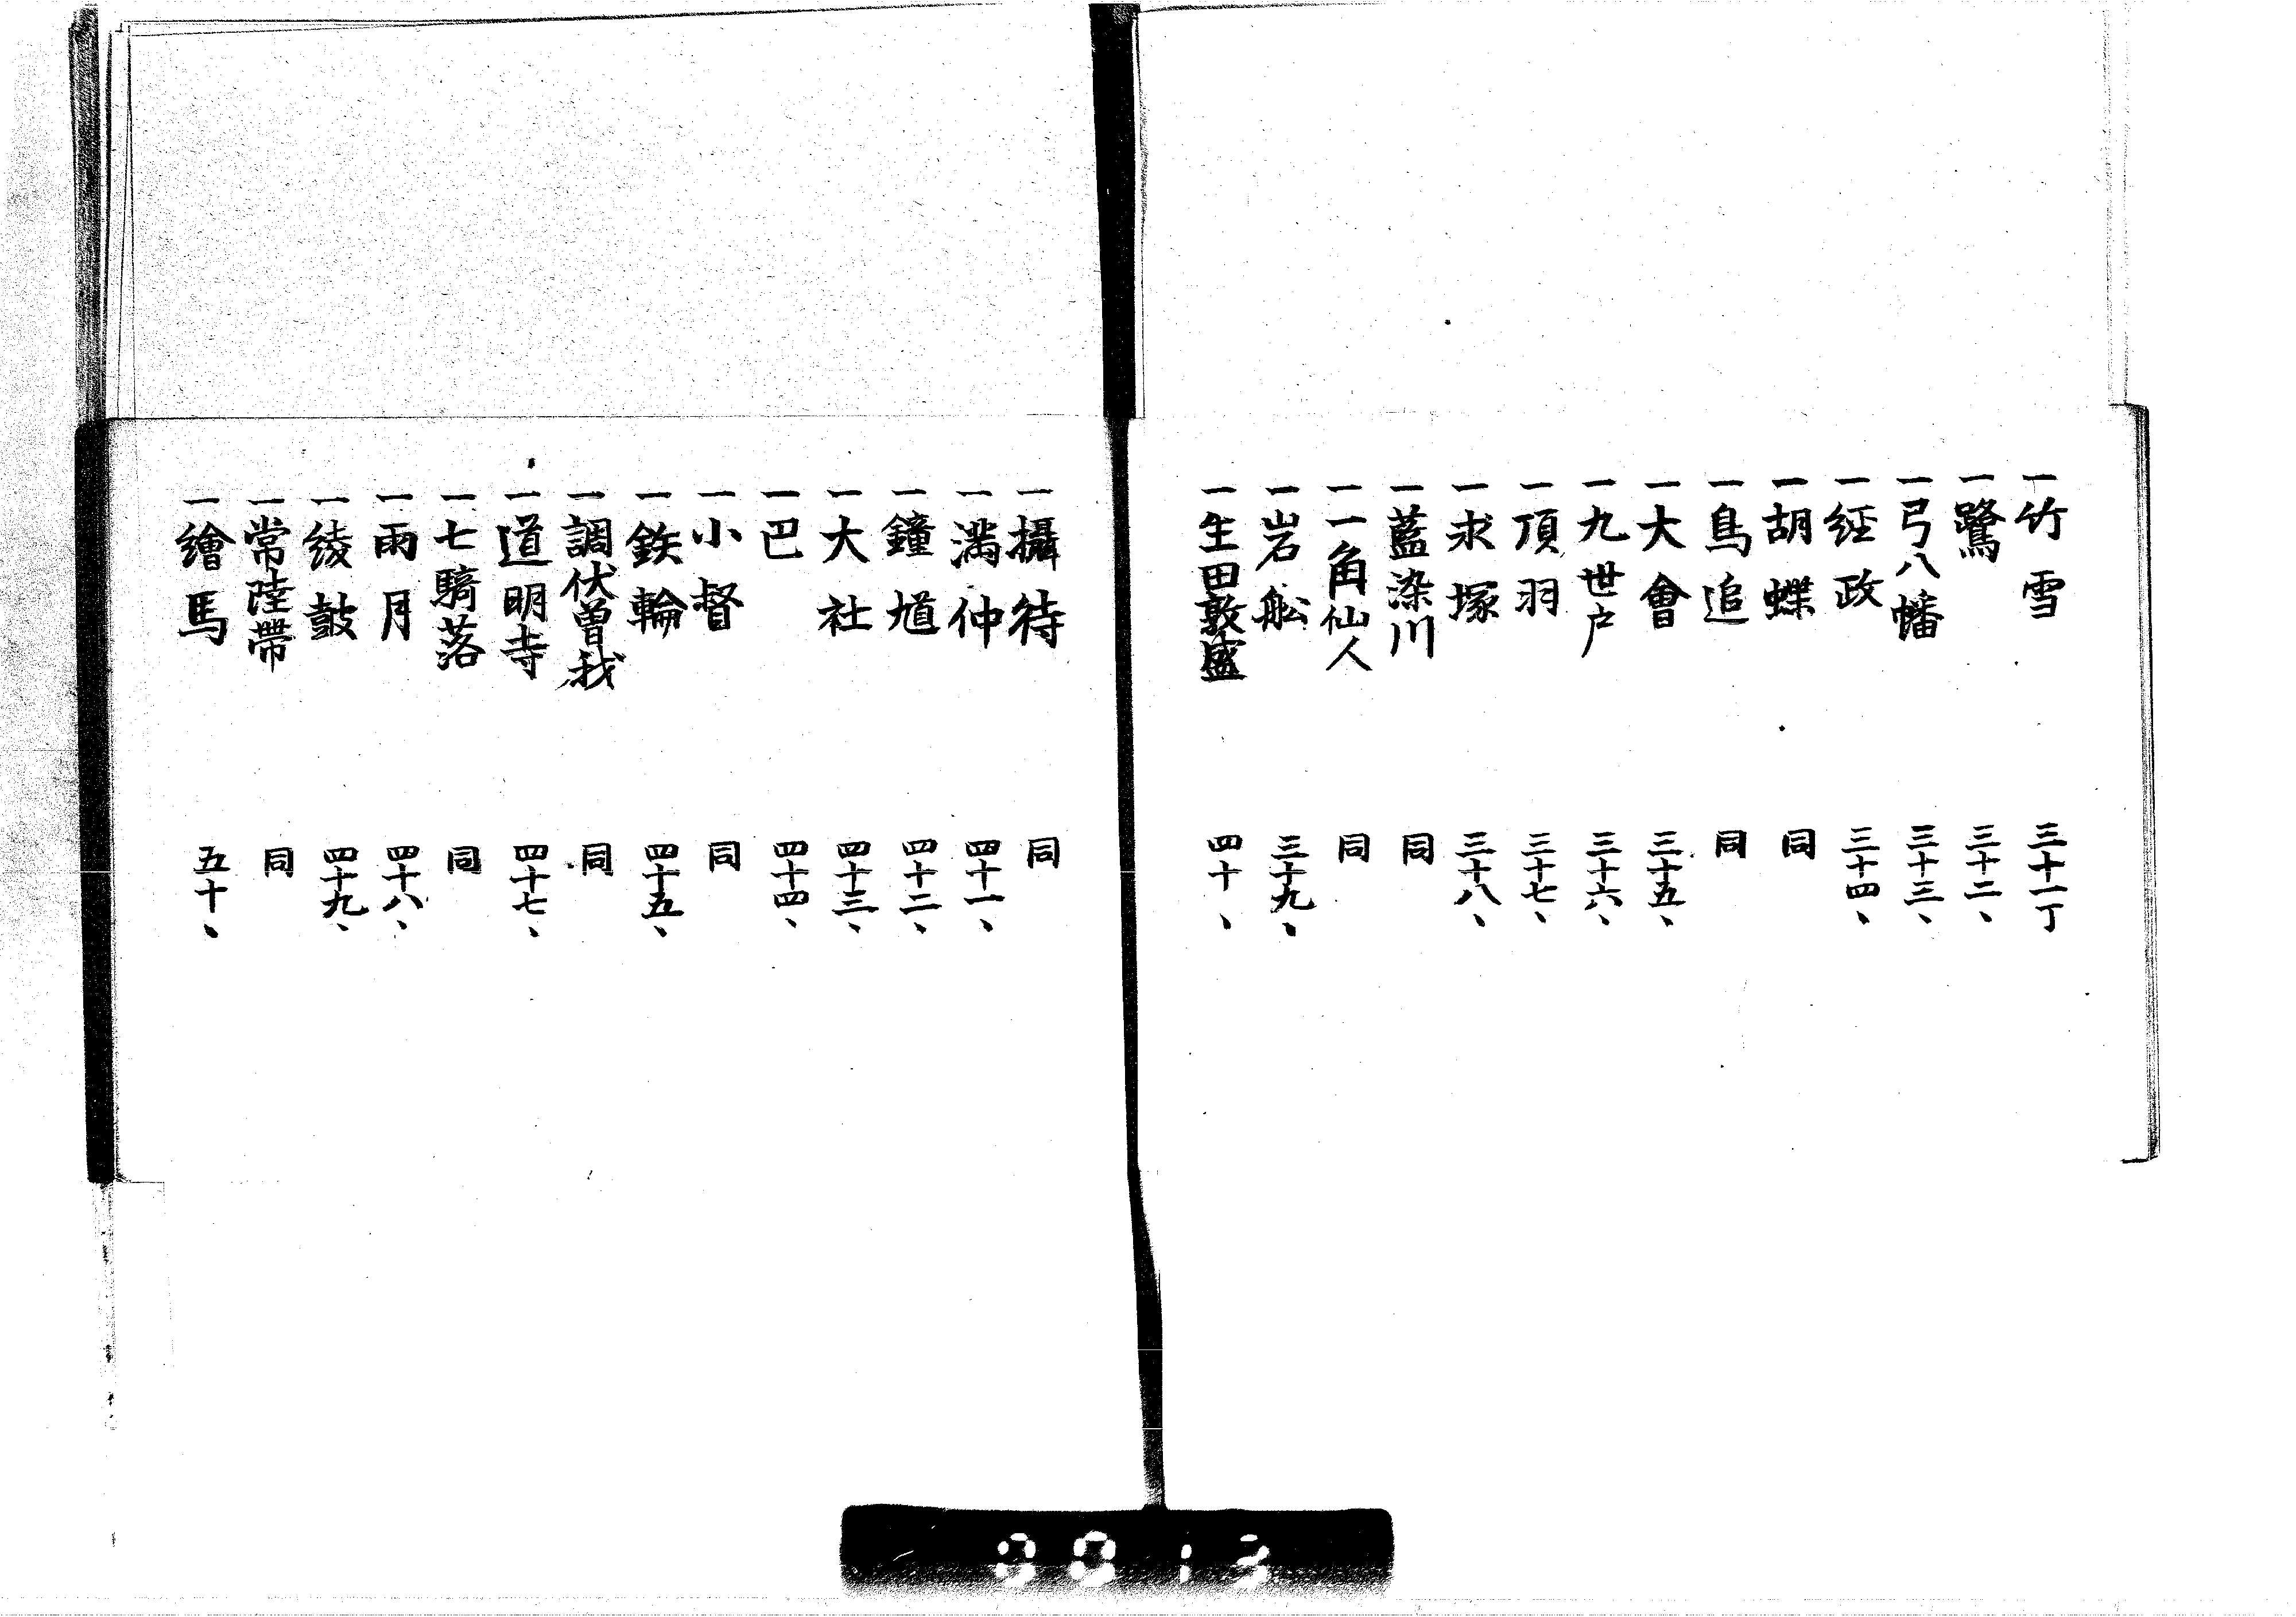 一竹雪 三十一丁
一鷺 三十二、
一弓八幡 三十三、
一經政 三十四、
一胡蝶 同
一鳥追 同
一大會 三十五、
一九世戸 三十六、
一項羽 三十七、
一求塚 三十八、
一藍染川 同
一一角仙人 同
一岩舩 三十九、
一生田敦盛 四十、
一攝待 同
一満仲 四十一、
一鐘馗 四十二、
一大社 四十三、
一巴 四十四、
一小督 同
一鉄輪 四十五、
一調伏曽我 同
一道明寺 四十七、
一七騎落 同
一雨月 四十八、
一綾鼓 四十九、
一常陸帶 同
一繪馬 五十、